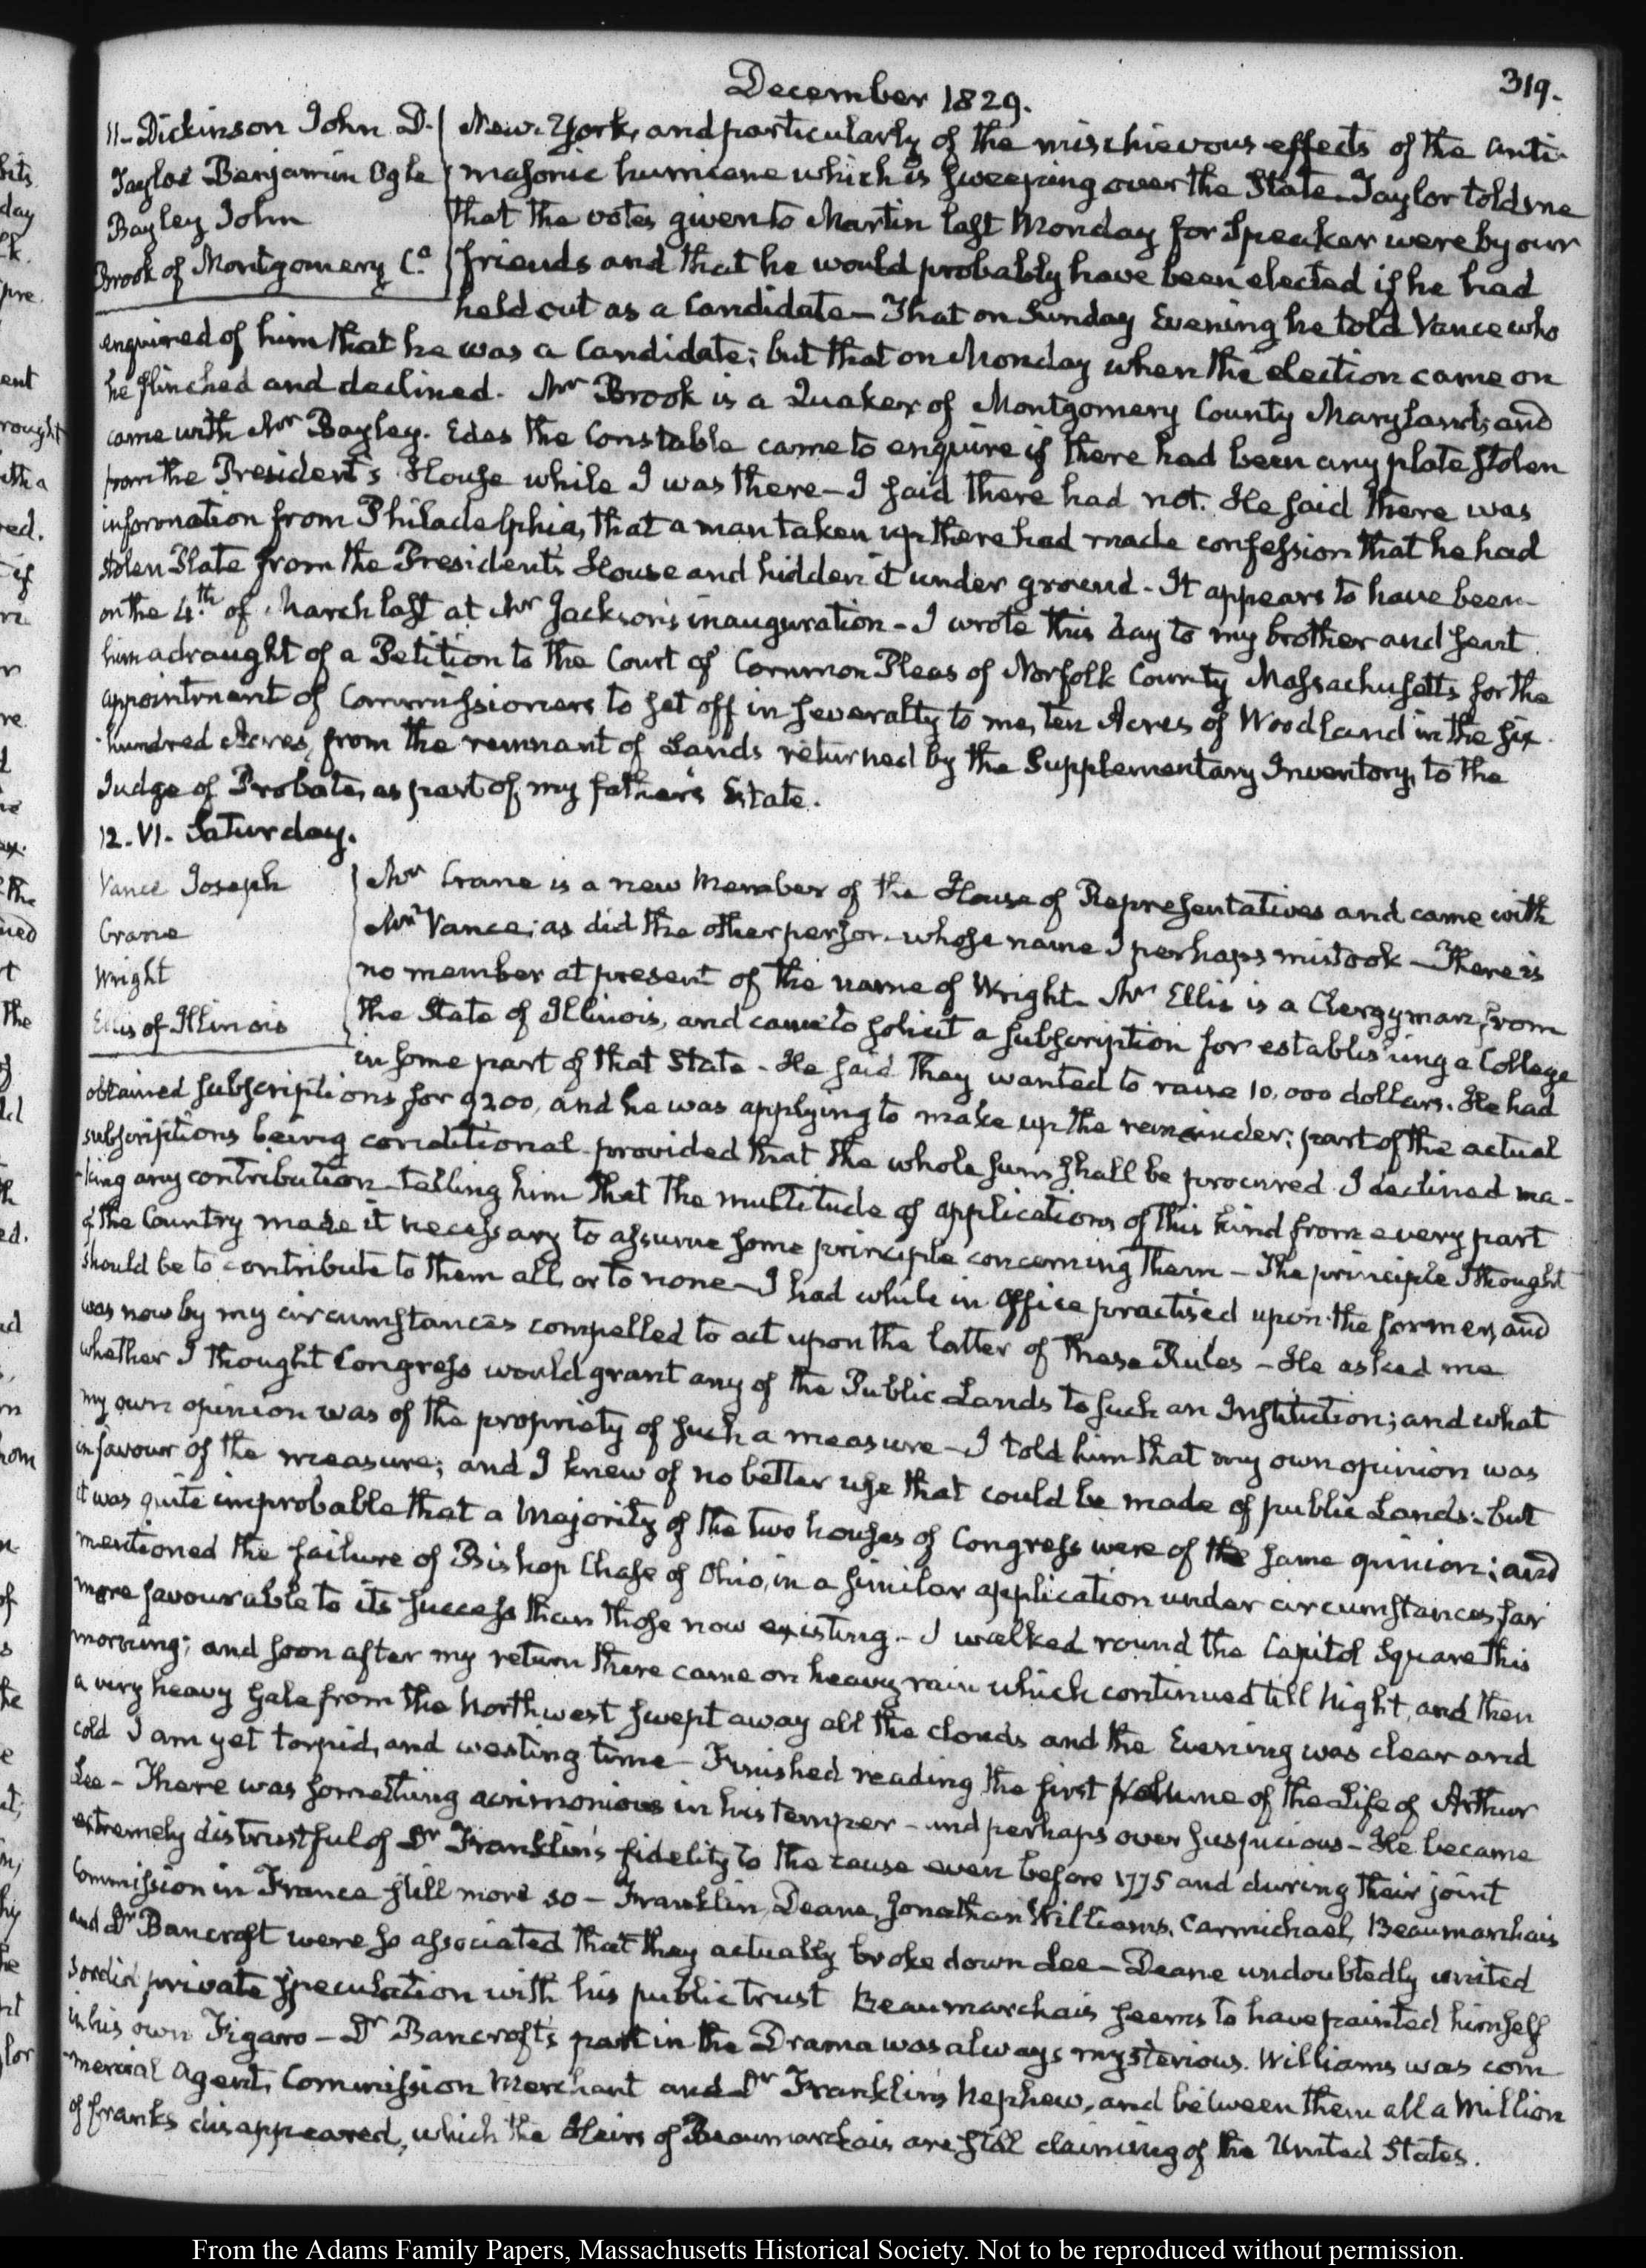 December 1829.
319.
11- Dickinson John D.
Taylor Benjamin Ogle
Bayley John
Brook of Montgomery Cᵒ
New-York, and particularly of the mischievous effects of the anti-
masonic hurricane which is sweeping over the State. Taylor told me
that the votes given to Martin last Monday for Speaker were by our
friends and that he would probably have been elected if he had
held out as a Candidate — That on Sunday Evening he told Vance who
enquired of him that he was a Candidate; but that on Monday when the election came on
he flinched and declined. Mr Brook is a Quaker of Montgomery County Maryland; and
came with Mr Bayley. Edes the Constable came to enquire if there had been any plate stolen
from the President's House while I was there — I said there had not. He said there was
information from Philadelphia, that a man taken up there had made confession that he had
stolen Plate from the President's House and hidden it under ground - It appears to have been
on the 4th of March last at Mr Jackson's inauguration - I wrote this day to my brother and sent
him a draught of a Petition to the Court of Common Pleas of Norfolk County Massachusetts for the
appointment of Commissioners to set off in severalty to me, ten Acres of Woodland in the six
hundred Acres, from the remnant of Lands returned by the Supplementary Inventory, to the
Judge of Probate, as part of my father's Estate.
12. VI. Saturday.
Vance Joseph
Crane
Wright
Ellis of Illinois
Mr Crane is a new Member of the House of Representatives and came with
Mr Vance; as did the other person whose name I perhaps mistook — There is
no member at present of the name of Wright. Mr Ellis is a Clergyman, from
the State of Illinois, and came to solicit a subscription for establishing a College
in some part of that State - He said they wanted to raise 10,000 dollars. He had
obtained subscriptions for 9200, and he was applying to make up the remainder; part of the actual
subscriptions being conditional provided that the whole sum shall be procured I declined ma-
-king any contribution telling him that the multitude of applications of this kind from every part
of the Country made it necessary to assume some principle concerning them — The principle I thought
should be to contribute to them all, or to none — I had while in Office practised upon the former, and
was now by my circumstances compelled to act upon the latter of these Rules — He asked me
whether I thought Congress would grant any of the Public Lands to such an Institution; and what
my own opinion was of the propriety of such a measure — I told him that my own opinion was
in favour of the measure; and I knew of no better use that could be made of public Lands: but
it was quite improbable that a Majority of the two houses of Congress were of the same opinion; and
mentioned the failure of Bishop Chase of Ohio, in a similar application under circumstances far
more favourable to its success than those now existing - I walked round the Capitol Square this
morning; and soon after my return there came on heavy rain which continued till Night, and then
a very heavy gale from the Northwest swept away all the clouds and the Evening was clear and
cold I am yet torpid, and wasting time — Finished reading the first Volume of the Life of Arthur
Lee - There was something acrimonious in his temper - and perhaps over suspicious — He became
extremely distrustful of Dr Franklin's fidelity to the cause even before 1775 and during their joint
Commission in France still more so — Franklin, Deane, Jonathan Williams, Carmichael, Beaumarchais
and Dr Bancroft were so associated that they actually broke down Lee — Deane undoubtedly united
sordid private speculation with his public trust Beaumarchais seems to have painted himself
in his own Figaro — Dr Bancroft's part in the Drama was always mysterious. Williams was com
-mercial Agent, Commission Merchant and Dr Franklin's Nephew, and between them all a Million
of franks disappeared, which the Heirs of Beaumarchais are still claiming of the United States.
From the Adams Family Papers, Massachusetts Historical Society. Not to be reproduced without permission.